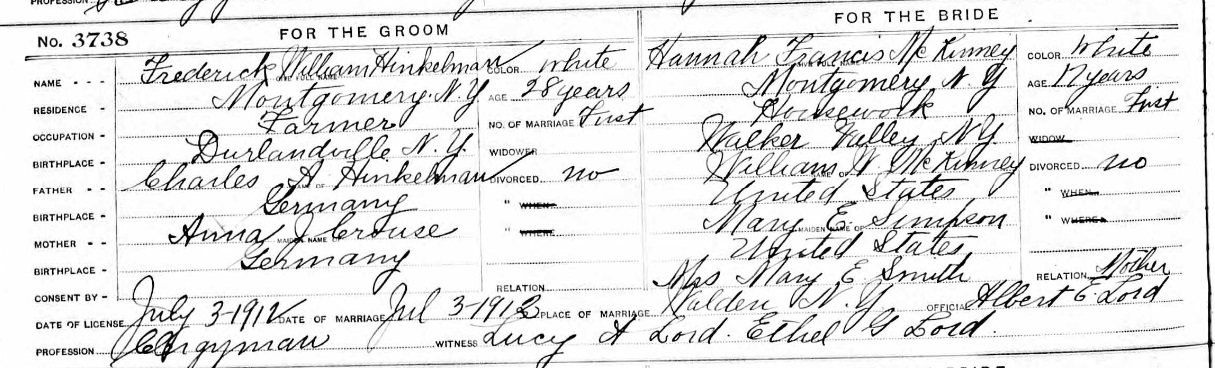 PROFESSION
No. 3738 FOR THE GROOM FOR THE BRIDE
NAME - - - Frederick William Hinkelman COLOR White Hannah Francis McKinney COLOR White
RESIDENCE - Montgomery N.Y AGE 28 years Montgomery N.Y AGE 17 years
OCCUPATION - Farmer NO. OF MARRIAGE First Housework NO. OF MARRIAGE First
BIRTHPLACE - Durlandville N.Y. WIDOWER Walker Valley N.Y. WIDOW
FATHER - - Charles A Hinkelman DIVORCED no William W McKinney DIVORCED no
BIRTHPLACE - Germany " WHEN United States " WHEN
MOTHER - - Anna J Crouse MAIDEN NAME " WHERE Mary E. Simpson MAIDEN NAME OF " WHERE
BIRTHPLACE - Germany United States
CONSENT BY - RELATION Mrs Mary E Smith RELATION Mother
DATE OF LICENSE July 3-1912 DATE OF MARRIAGE Jul 3-1912 PLACE OF MARRIAGE Walden N.Y OFFICIAL Albert E. Lord
PROFESSION Clergyman WITNESS Lucy A Lord. Ethel G Lord.